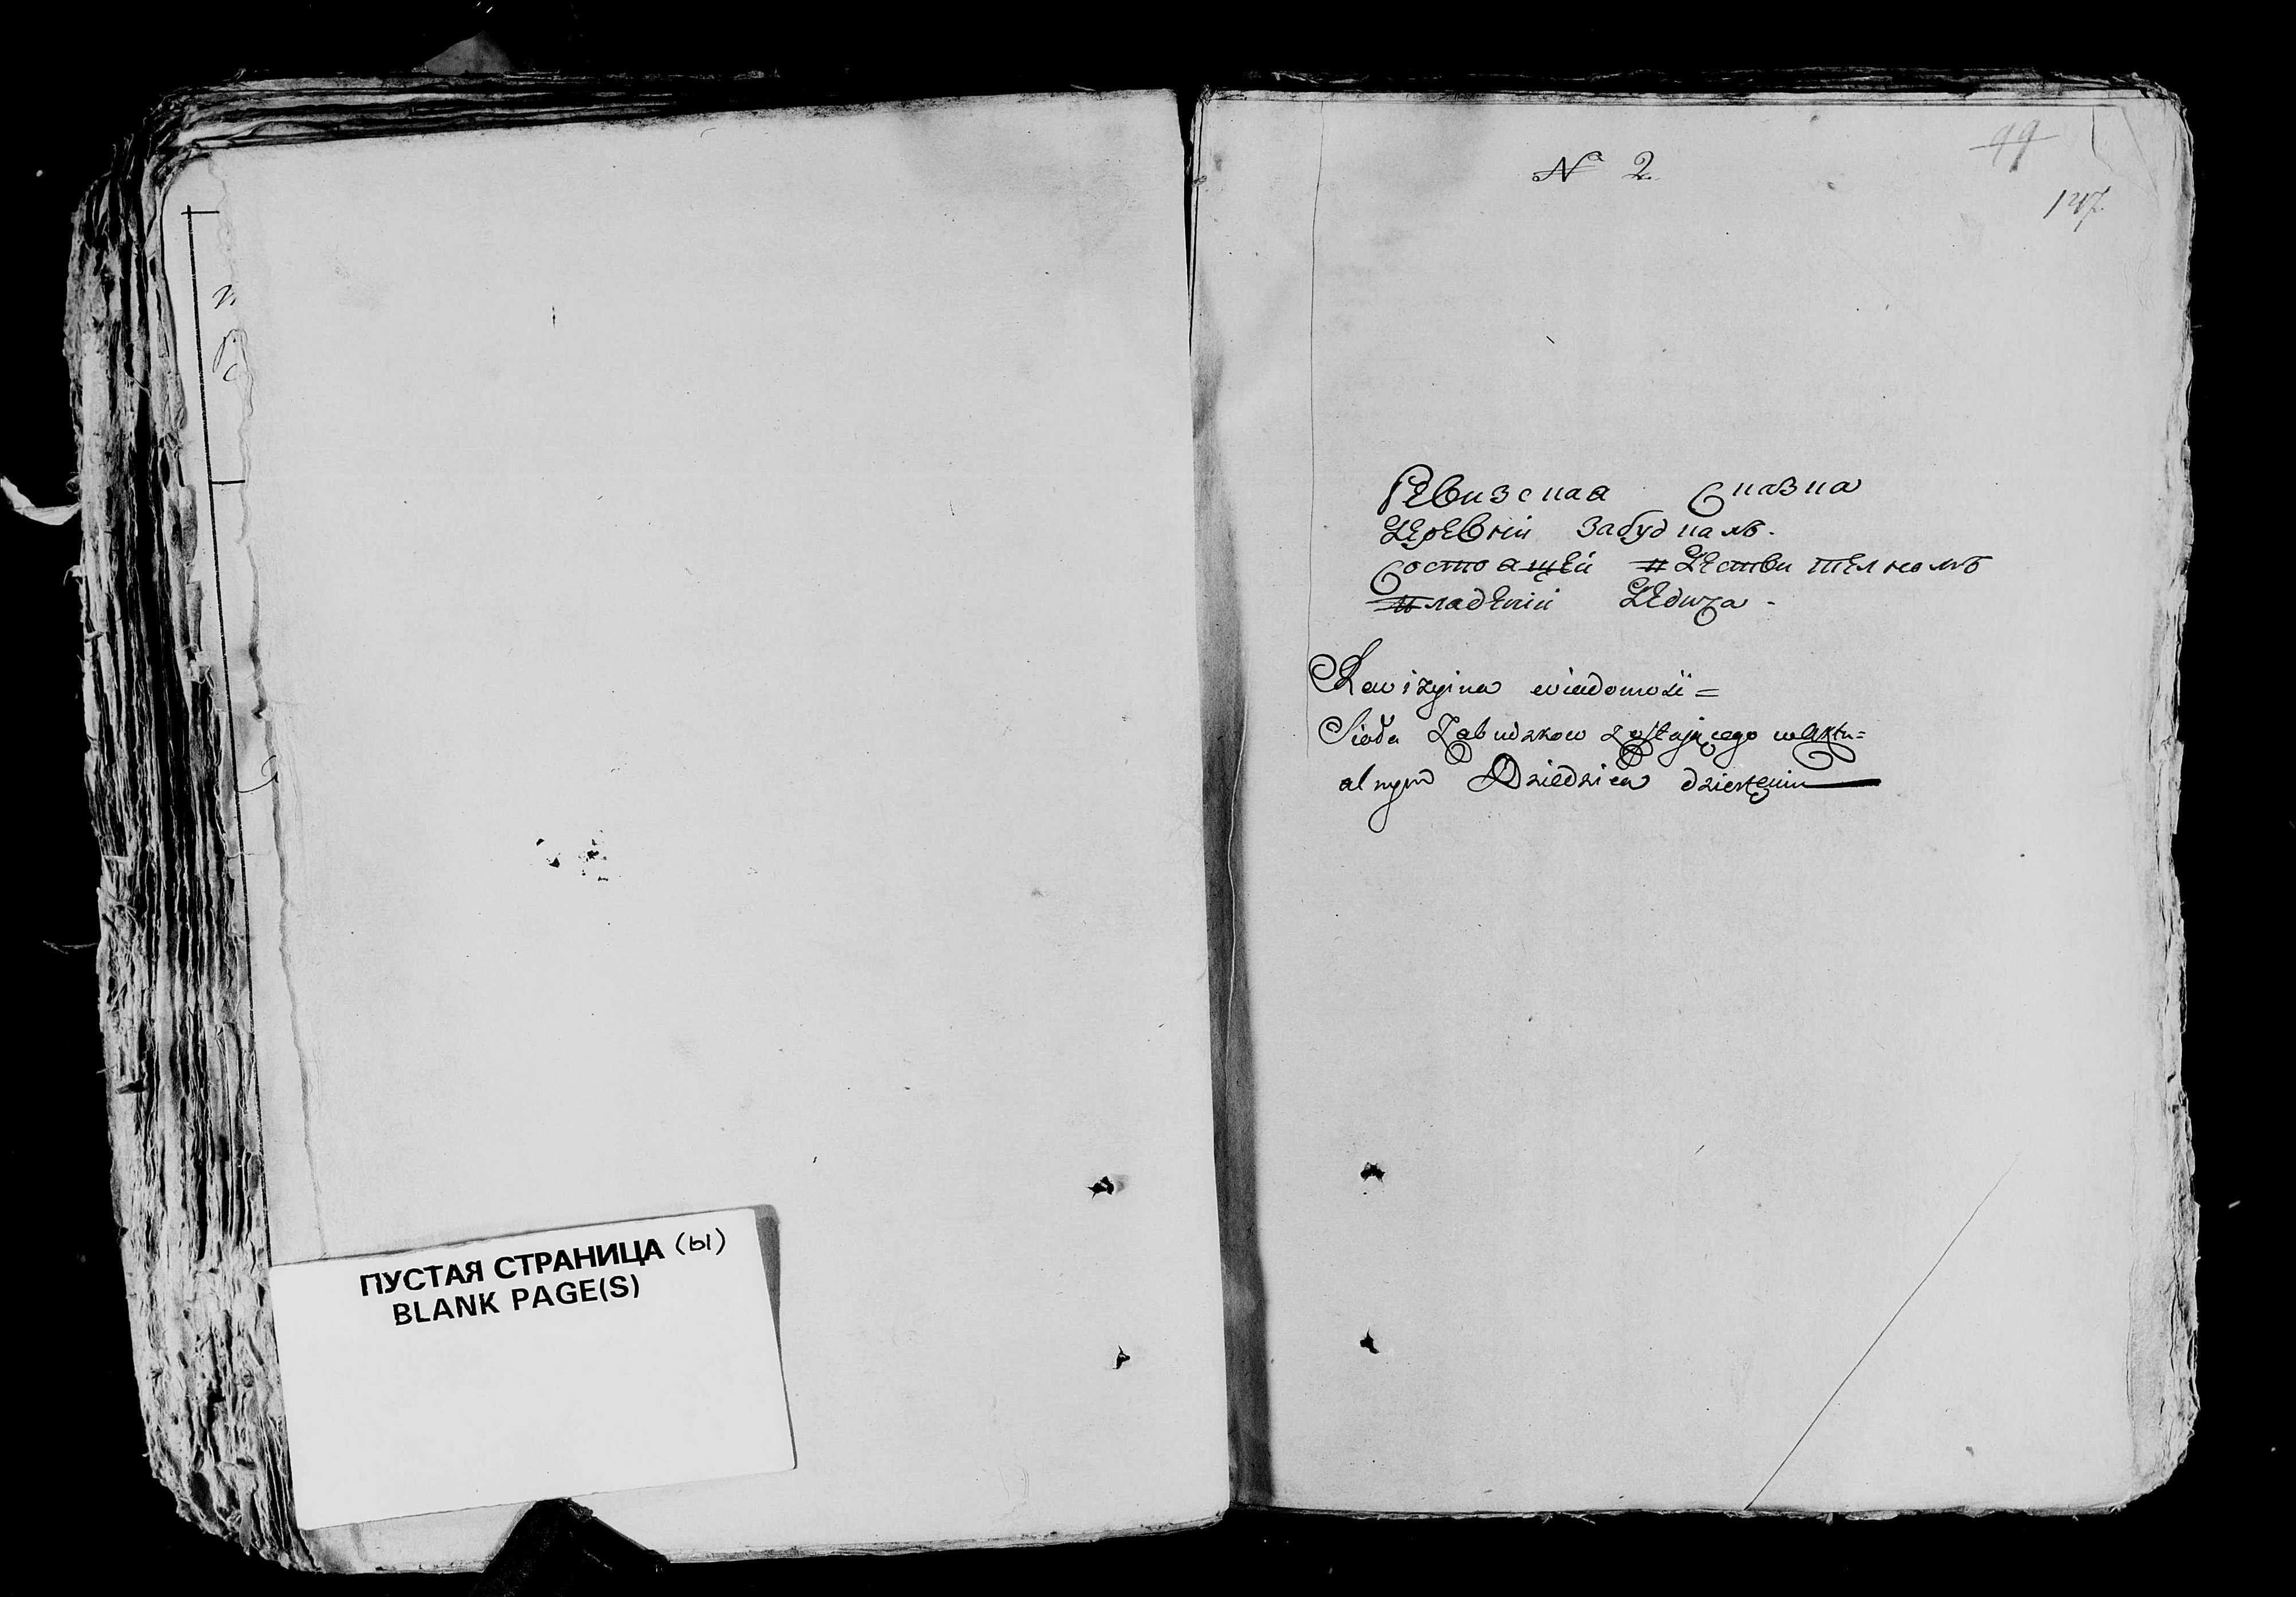 ПУСТАЯ СТРАНИЦА (ы)
BLANK PAGE(S)
№ 2
99
147
Ревизская Сказка
Деревни Забудкамъ.
Состоящей в Дествителномъ
владении Дедича -
Rewizyina wiadomość =
Sioła Zabudzkow zostającego w aktu=
alnym Dziedzica dzierżeniu